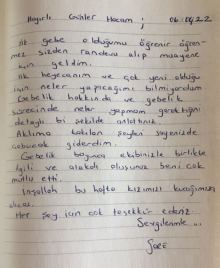 Hayırlı Günler Hocam ;
İlk gebe olduğumu öğrenir öğren-
mez sizden randevu alıp muayene
için geldim.
İlk heyecanım ve çok yeni olduğu
için neler yapacağımı bilmiyordum
Gebelik hakkında ve gebelik
sürecinde neler yapmam gerektiğini
detaylı bi şekilde anlattınız.
Aklıma takılan şeyleri sayenizde
çabucak giderdim.
Gebelik boyunca ekibinizle birlikte
ilgili ve alakalı oluşunuz beni çok
mutlu etti.
İnşallah bu hafta kızımızı kucağımıza
Her şey için çok teşekkür ederiz
Sevgilerimle